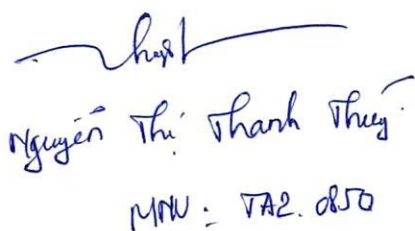 Nguyễn Thị Thanh Thuý
MNV: TA2.0850